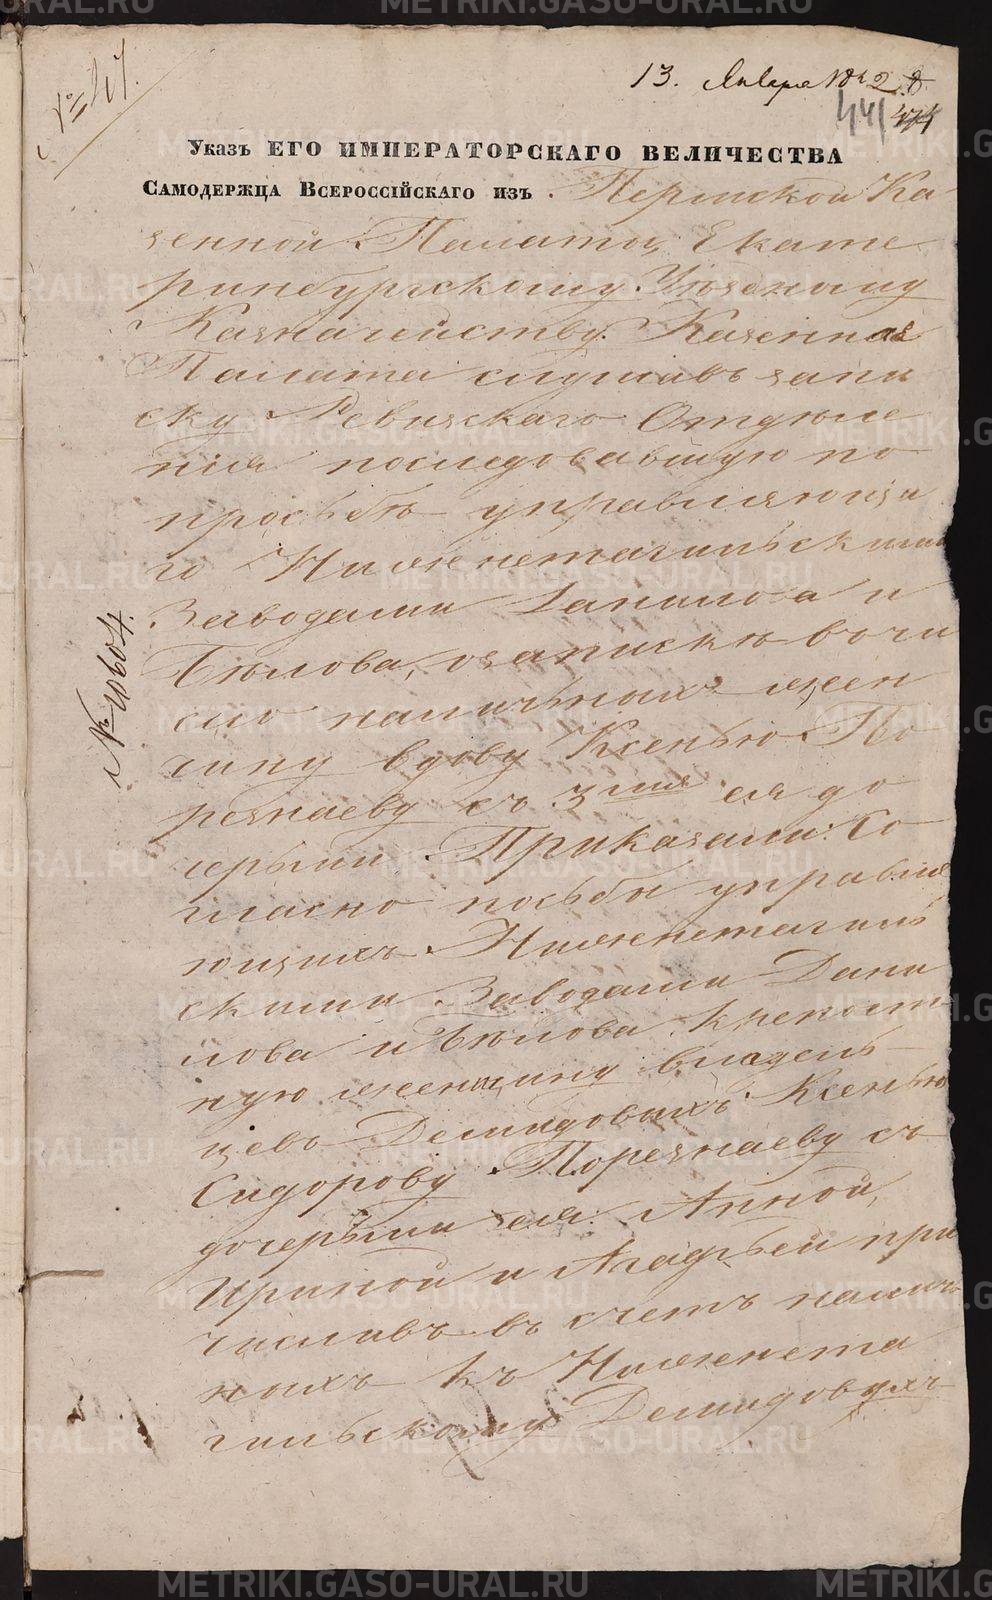 № 47.
13. Января 1842.
441
Указъ ЕГО ИМПЕРАТОРСКАГО ВЕЛИЧЕСТВА
Самодержца Всероссійскаго изъ Пермской Ка-
зенной Палаты, Екате
ринбургскому Уѣздному
Казначейству. Казенная
Палата слушавъ запи
ску Ревизскаго Отдѣле
нія последовавшую по
прозьбѣ управляюща
го Нижнетагильскими
Заводами Данилова и
Бѣлова, о запискѣ въ чи
сло наличныхъ жен
щину вдову Ксенью По
резнаеву съ 3мя ея до
черьми. Приказали: Со
гласно посьбы управля
ющихъ Нижнетагиль
скими Заводами Дани
лова и Бѣлова крепост
ную женщину владель
цевъ Демидовыхъ Ксенью
Сидорову Порезнаеву съ
дочерьми ея: Анной,
Ириной и Агафьей при
числивъ въ счетъ налич
ныхъ къ Нижнета
гильскому Демидовыхъ
№ 40604.
METRIKI.GASO-URAL.RU